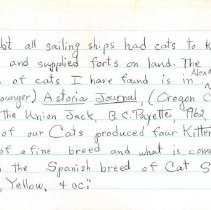 all sailing ships had cats to k
and supplied forts on land. The
of cats I have found is in Alex
ounger) Astoria Journal, (Oregon C
the Union Jack, B.C. Payette, 1962
of our Cats produced four Kitten
of a fine breed and what is comm
the Spanish breed of Cat S
, Yellow, &c."